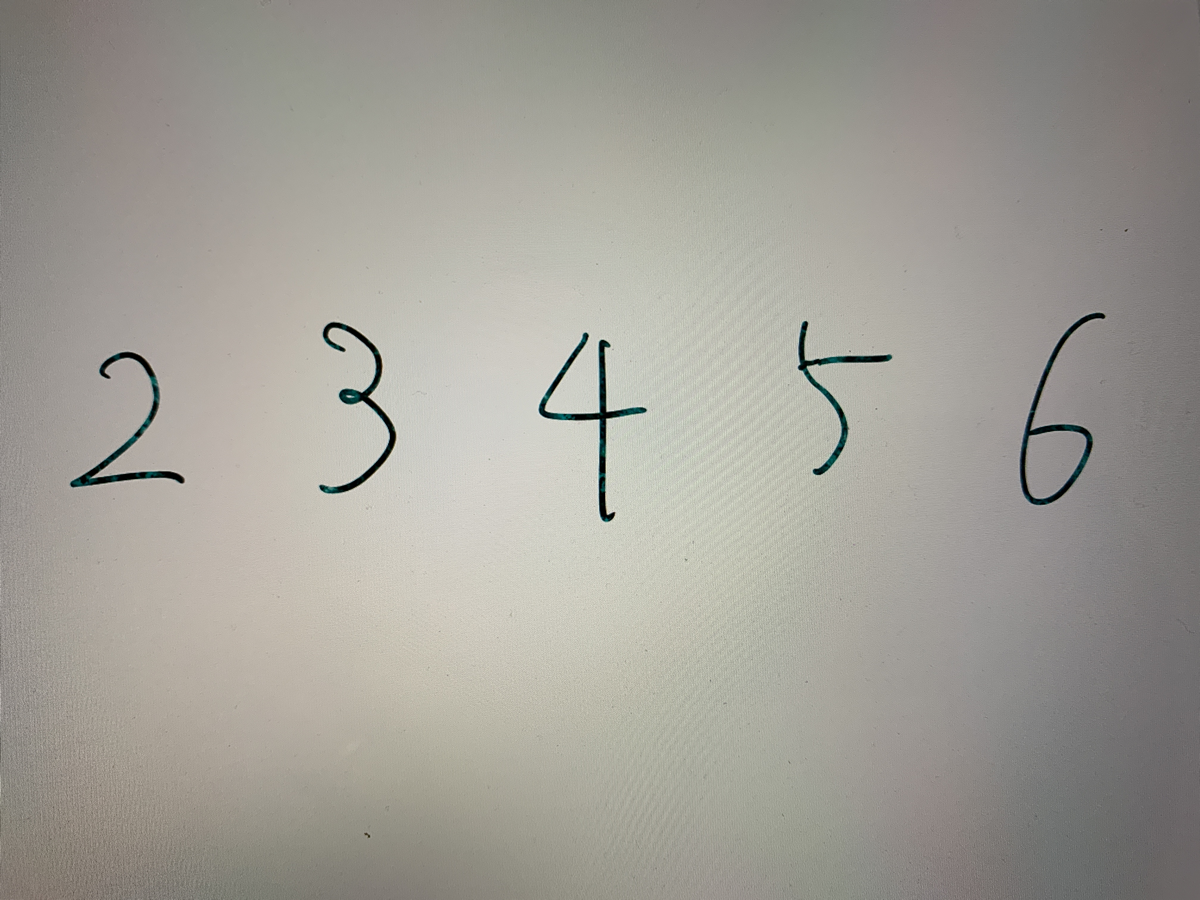 2 3 4 5 6